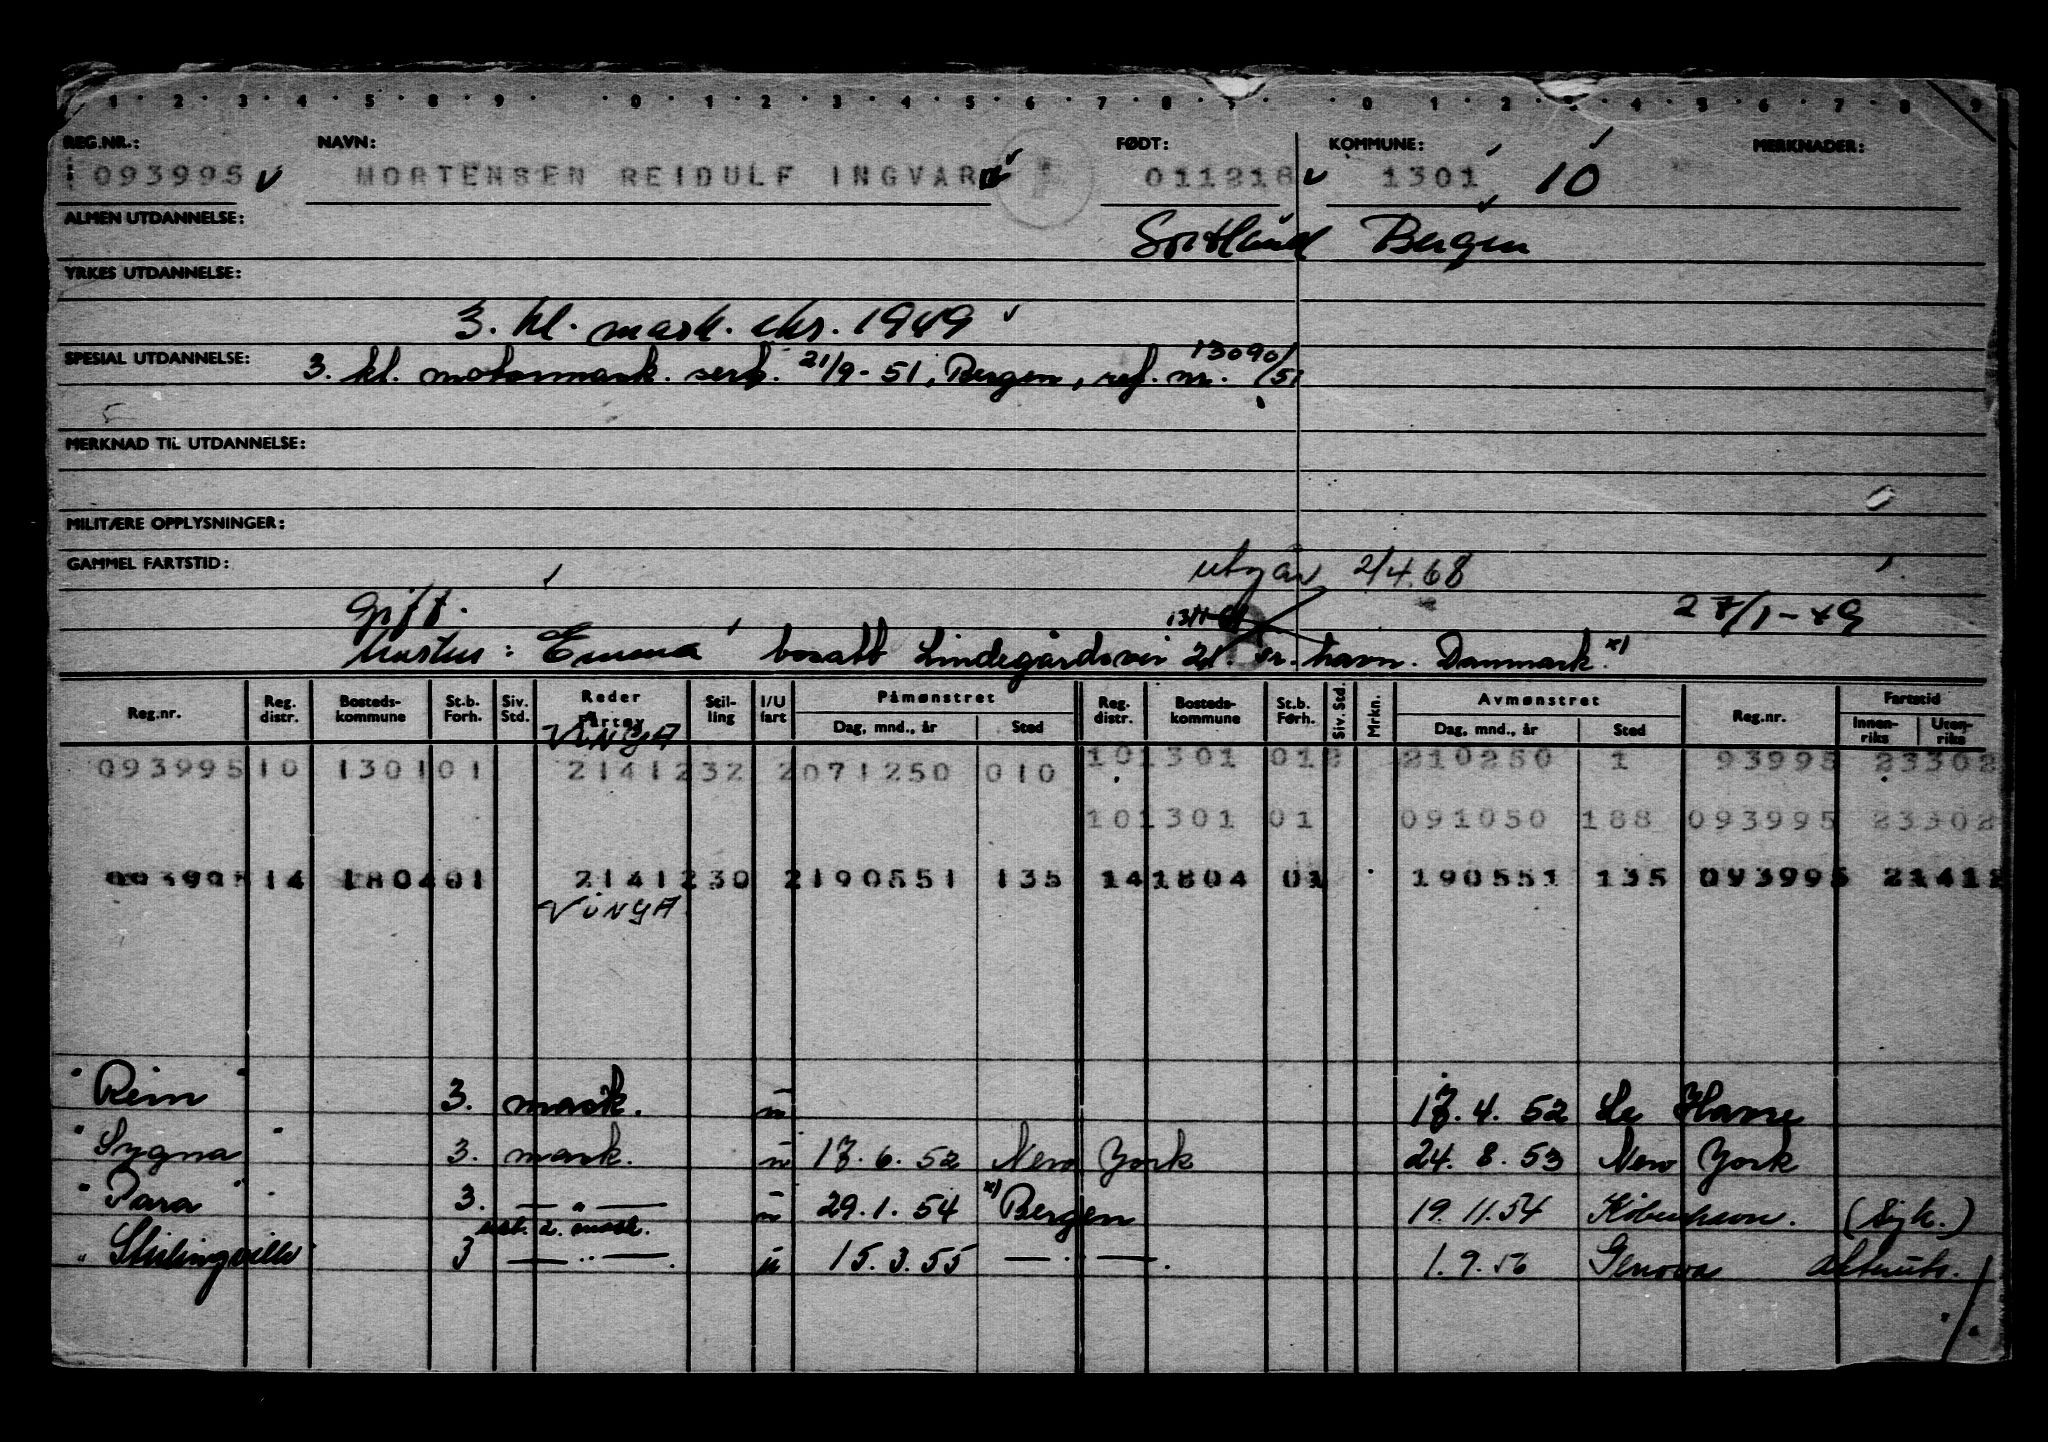 1 · 2 · 3 · 4 · 5 · 6 · 9 · · 0 · 1 · 2 · 3 · 4 · 5 · 6 · 7 · 8 · 9 · · 0 · 1 · 2 · 3 · 4 · 5 · 6 · 7 · 8 · 9
REG.NR.: NAVN: FØDT: KOMMUNE: MERKNADER:
093995 MORTENSEN REIDULF INGVAR 011218 1301 10
ALMEN UTDANNELSE: Sortland Bergen
YRKES UTDANNELSE:
3. kl. mask. eks. 1949
SPESIAL UTDANNELSE: 3. kl. motormask. sert. 21/9-51, Bergen, ref. nr. 13090/51
MERKNAD TIL UTDANNELSE:
MILITÆRE OPPLYSNINGER:
GAMMEL FARTSTID: utgår 2/4.68
Gift. 27/1-49
hustru: Emma bosatt Lindegårdsvei 21. Fr.havn. Danmark. x)
Reg.nr. Reg. distr. Bosteds-kommune St.b. Forh. Siv. Std. Reder Fartøy Stil-ling I/U fart Påmønstret Dag, mnd., år Sted Reg. distr. Bosteds-kommune St.b. Førh. Siv. Std. Mrkn. Avmønstret Dag, mnd., år Sted Reg.nr. Fartstid Innen-riks Uten-riks
VINGA
093995 10 1301 01 21412 32 2 071250 010 10 1301 01 2 210250 1 93995 23302
10 1301 01 091050 188 093995 23302
093995 14 1804 01 21412 30 2 190551 135 14 1804 01 190551 135 093995 21412
VINGA
"Rein" 3. mask. u 17.4.52 Le Havre
"Sygna" 3. mask. u 17.6.52 New York 24.8.53 New York
"Para" 3. — " — u 29.1.54 x) Bergen 19.11.54 København. (syk.)
ass. 2. mask.
"Stirlingville 3 — " — u 15.3.55 — " — . 1.9.56 Genova